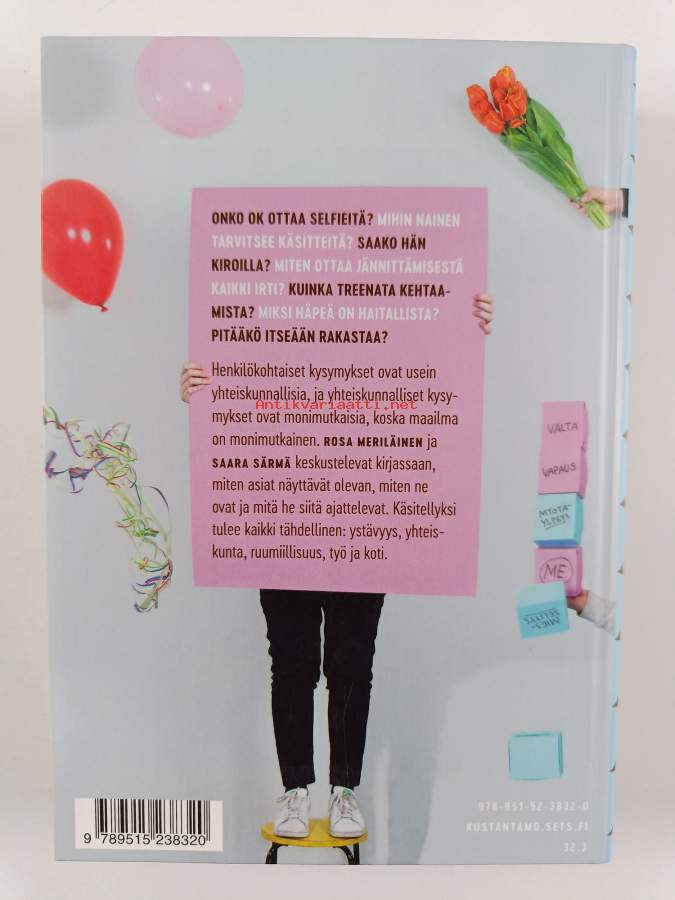 ONKO OK OTTAA SELFIEITÄ? MIHIN NAINEN
TARVITSEE KÄSITTEITÄ? SAAKO HÄN
KIROILLA? MITEN OTTAA JÄNNITTÄMISESTÄ
KAIKKI IRTI? KUINKA TREENATA KEHTAA-
MISTA? MIKSI HÄPEÄ ON HAITALLISTA?
PITÄÄKÖ ITSEÄÄN RAKASTAA?
Henkilökohtaiset kysymykset ovat usein
yhteiskunnallisia, ja yhteiskunnalliset kysy-
mykset ovat monimutkaisia, koska maailma
on monimutkainen. ROSA MERILÄINEN ja
SAARA SÄRMÄ keskustelevat kirjassaan,
miten asiat näyttävät olevan, miten ne
ovat ja mitä he siitä ajattelevat. Käsitellyksi
tulee kaikki tähdellinen: ystävyys, yhteis-
kunta, ruumiillisuus, työ ja koti.
Antikvariaatti.net
VALTA
VAPAUS
MYÖTÄ-
YLPEYS
ME
MIES-
SELITYS
9 789515 238320
978-951-52-3832-0
KUSTANTAMO.SETS.FI
32.3